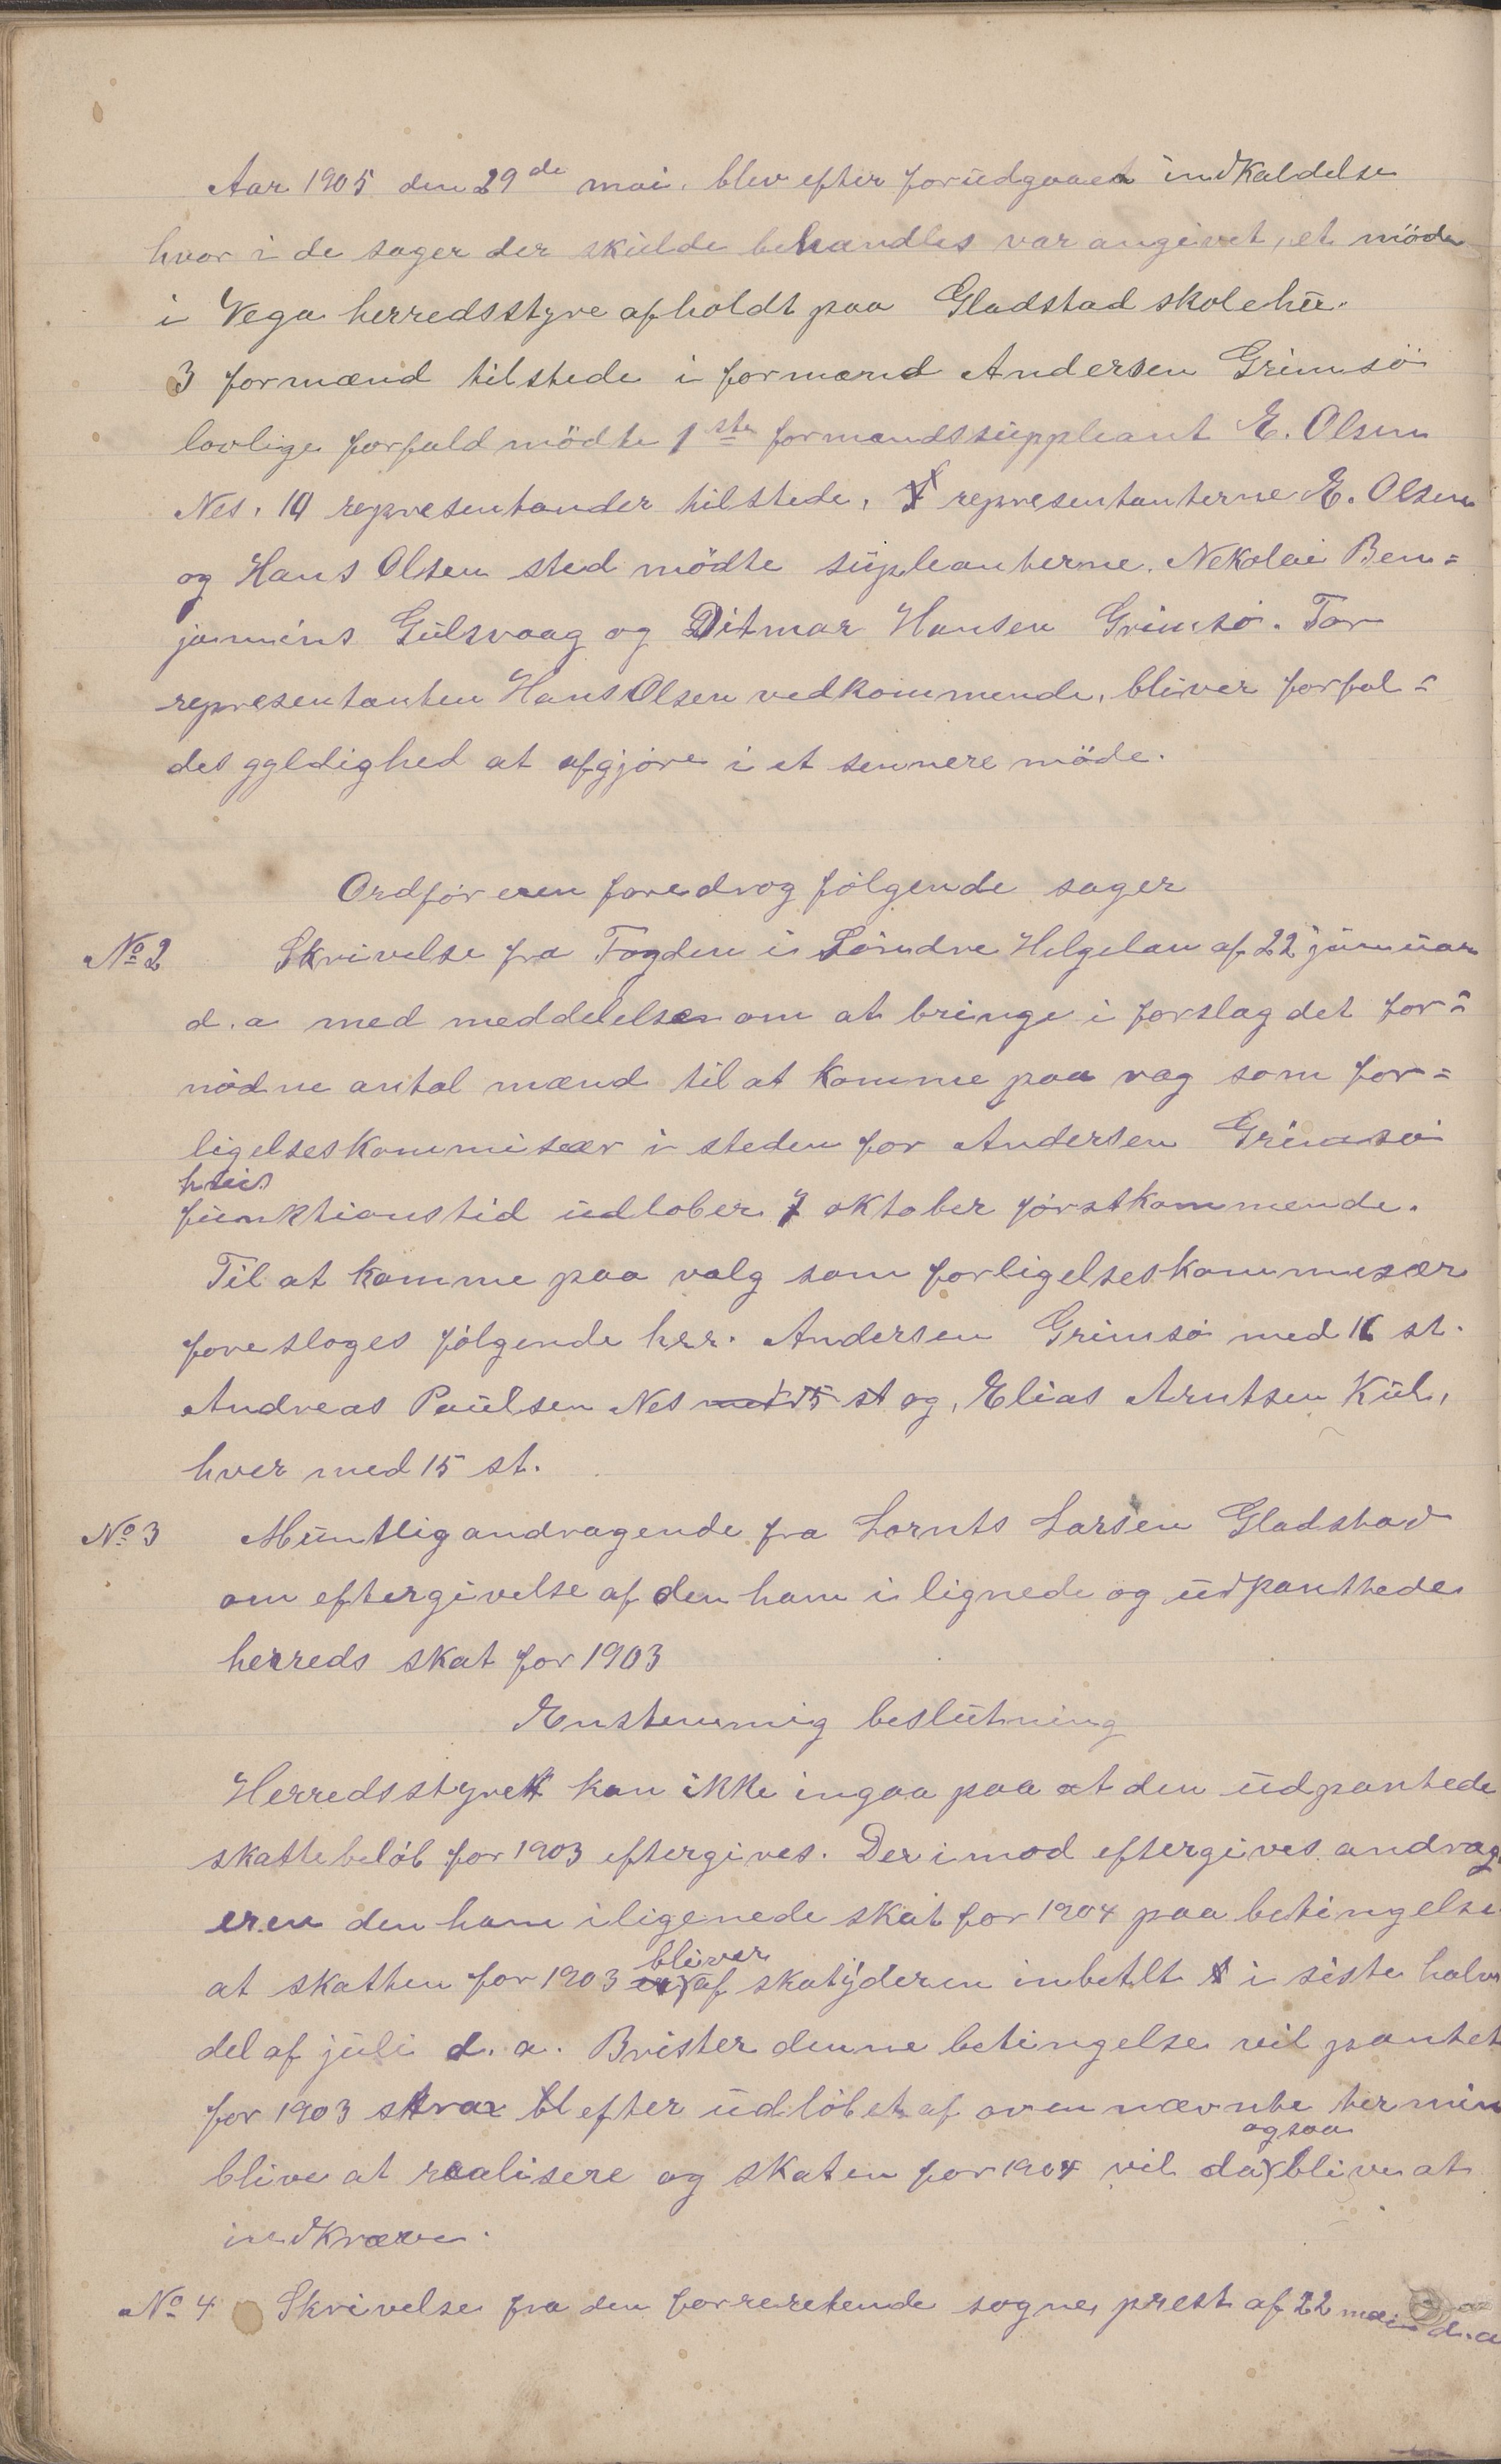 Aar 1905 den 29de mai. blev efter forudgaaet indkaldelse
hvor i de sager der skulde behandles var angivet, et möde
i Vega herredsstyre afholdt paa Gladstad skolehu.
3 formænd tilstede i formænd Andersen Grimsö
lovlige forfald mödte 1ste formandssuppleant E. Olsen
Nes. 14 representander tilstede, I representanterne E. Olsen
og Hans Olsen sted mödte supleanterne. Nekolai Ben=
jamins Gulsvaag og Ditmar Hansen Grimsö. For
representanten Hans Olsen vedkommende, bliver forfal=
des gyldighed at afgjöre i et sennere möde.
Ordföreren foredrog fölgende sager
No 2 Skrivelse fra Fogden i Söndre Helgelan af 22 januar
d. a med meddelelse om at bringe i forslag det for=
nödne antal mænd til at komme paa vag som for=
ligelseskommisær i steden for Andersen Grimsö
hvis
funktionstid udlober 7 oktober förstkommende.
Til at komme paa valg som forligelseskommesær
foresloges fölgende her. Andersen Grimsö med 16 st.
Andreas Paulsen Nes med 15 st og, Elias Arntsen Kul,
hver med 15 st.
No 3 Muntlig andragende fra Lornts Larsen Gladstad
om eftergivelse af den ham i lignede og udpanttede
herreds skat for 1903
Enstemmig beslutning
Herredsstyret kan ikke ingaa paa at den udpantede
skattebelöb for 1903 eftergives. Derimod eftergives andrag
eren den ham iligenede skat for 1904 paa betingelse
bliver
at skatten for 1903 er af skatyderen inbetlt i siste halv
del af juli d. a. Brister denne betingelse vil pantet
for 1903 strax bl efter udlöbet af oven nævnte termin
ogsaa
blive at realisere og skaten for 1904 vil da blive at
indkræve.
No 4 Skrivelse fra den forreretende sogne prest af 22 mai d. a